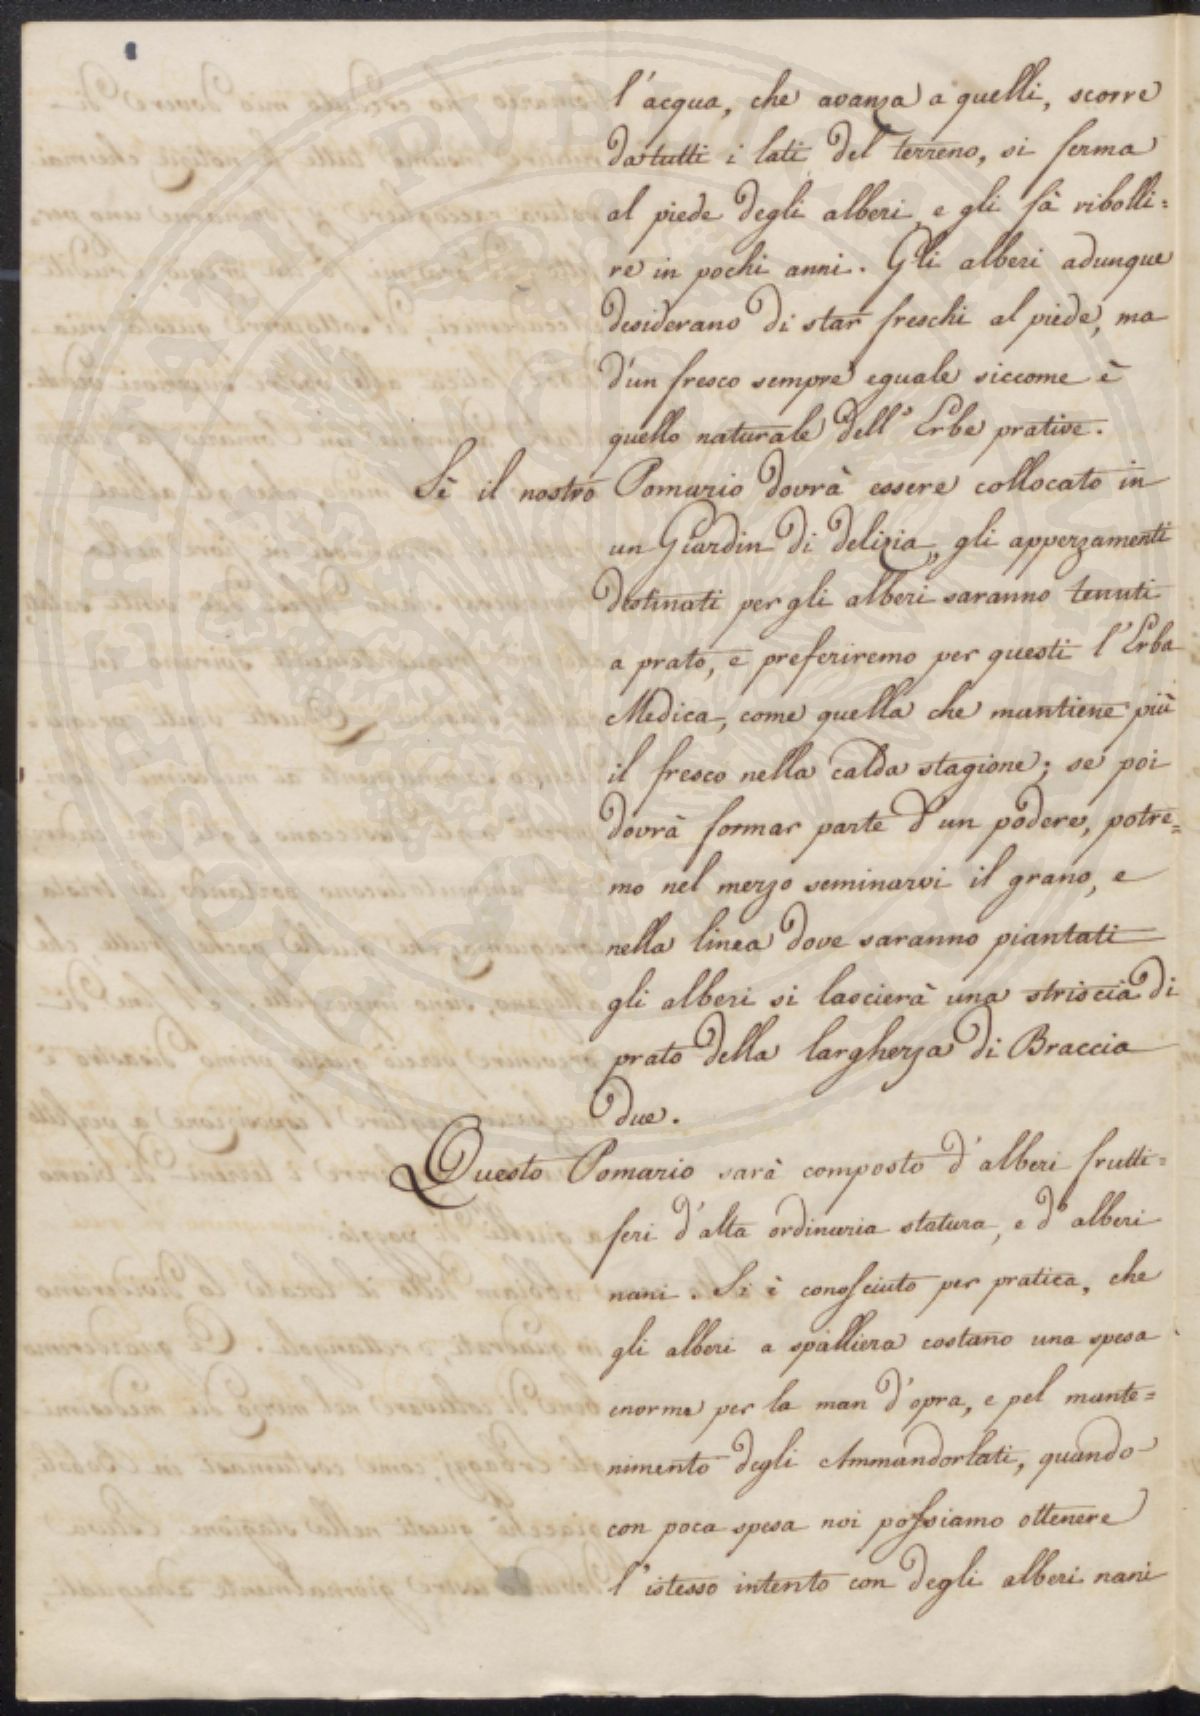 l'acqua, che avanza a quelli, scorre
da tutti i lati del terreno, si ferma
al piede degli alberi, e gli fà ribolli=
re in pochi anni. Gli alberi adunque
desiderano di star freschi al piede, ma
d'un fresco sempre eguale siccome è
quello naturale dell'Erbe prative.
Sè il nostro Pomario dovrà essere collocato in
un Giardin di delizia, gli appezzamenti
destinati per gli alberi saranno tenuti
a prato, e preferiremo per questi l'Erba
Medica, come quella che mantiene più
il fresco nella calda stagione; se poi
dovrà formar parte d'un podere, potre=
mo nel mezzo seminarvi il grano, e
nella linea dove saranno piantati
gli alberi si lascierà una striscia di
prato della larghezza di Braccia
due.
Questo Pomario sarà composto d'alberi frutti=
feri d'alta ordinaria statura, e d'alberi
nani. Si è conosciuto per pratica, che
gli alberi a spalliera costano una spesa
enorme per la man d'opra, e pel mante=
nimento degli Ammandorlati, quando
con poca spesa noi possiamo ottenere
l'istesso intento con degli alberi nani